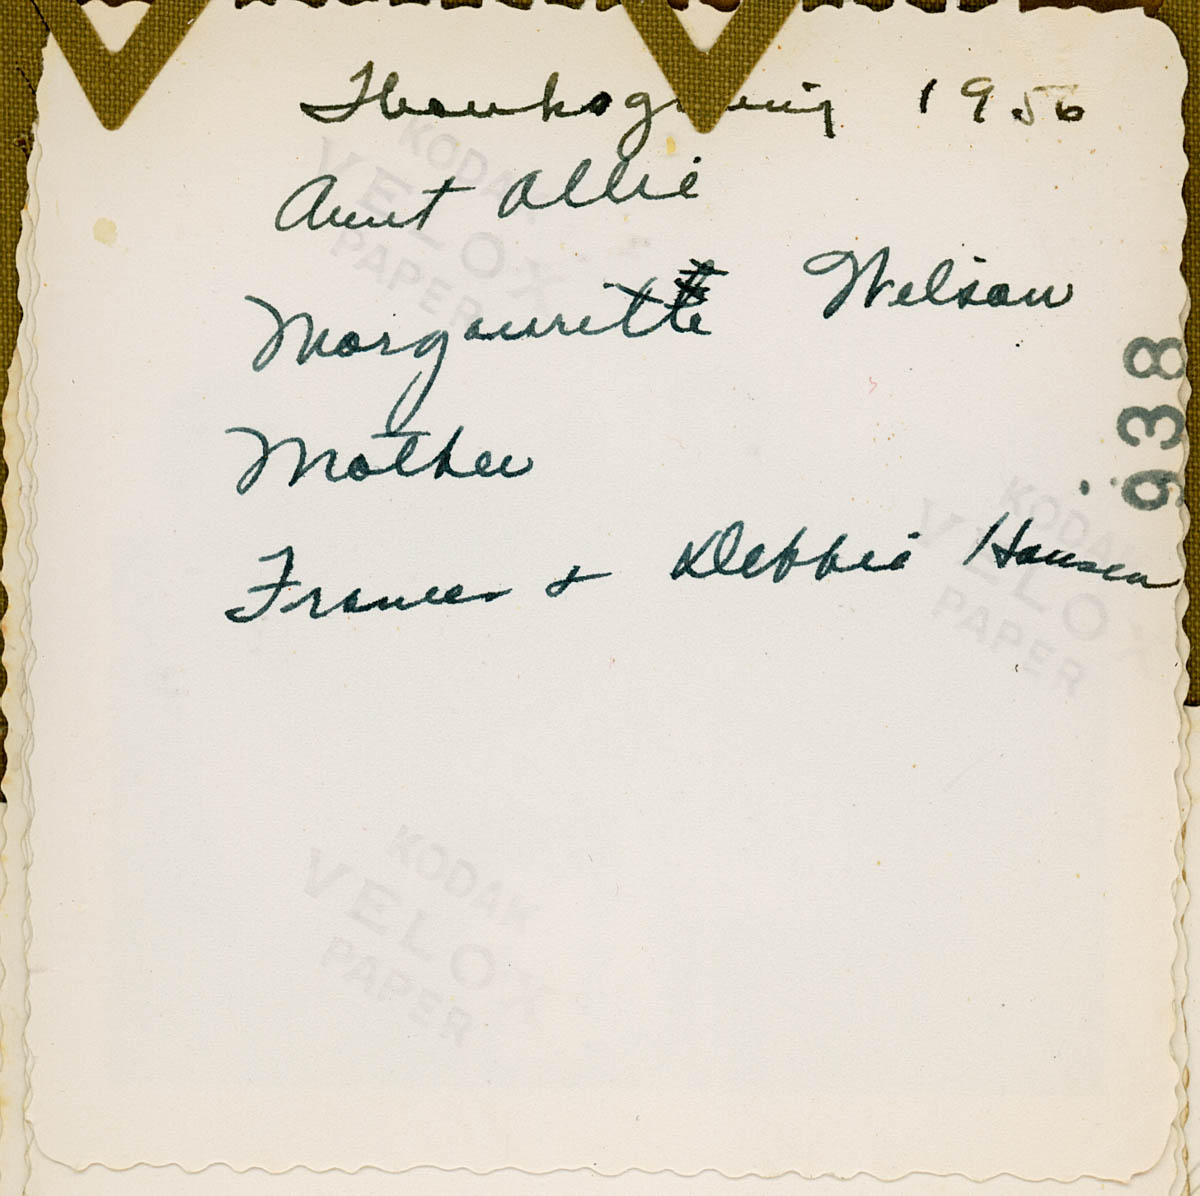 Thanksgiving 1956
Aunt Allie
Margauritte Wilson
Mother
Frances & Debbie Hansen
938
KODAK
VELOX
PAPER
KODAK
VELOX
PAPER
KODAK
VELOX
PAPER